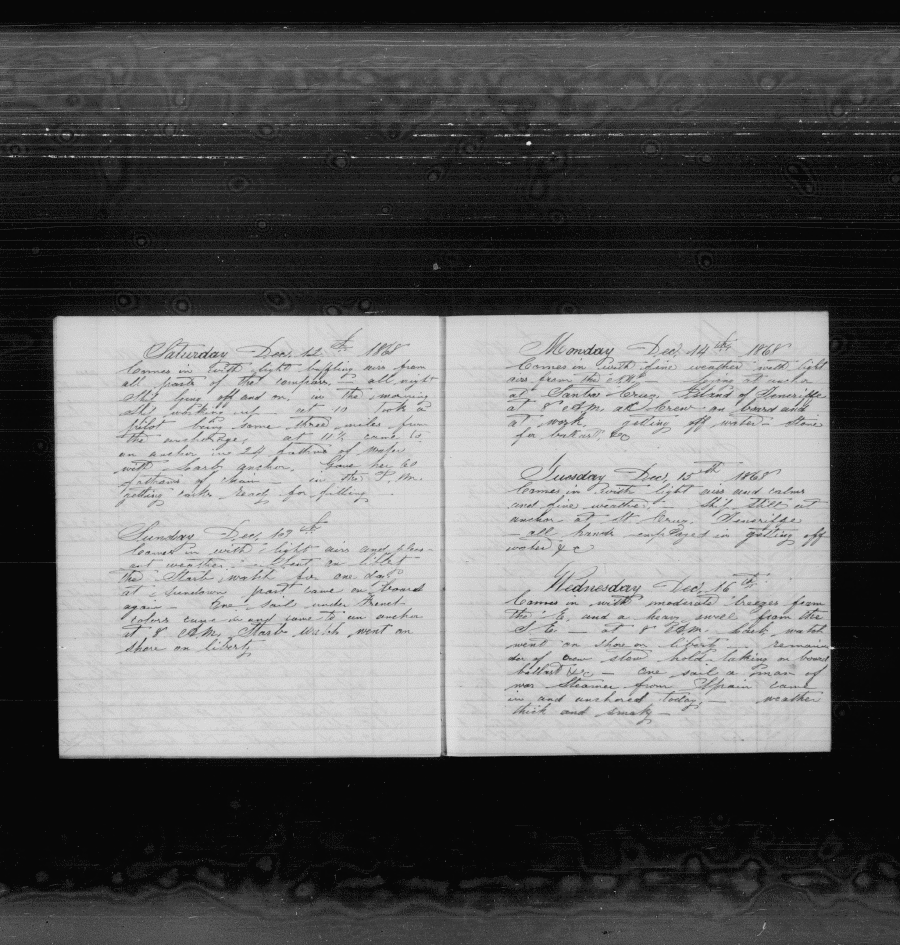 Saturday Dec. 12th 1868
Comes in with light baffling airs from
all parts of the compass. — all night
Ship lying off and on, in the morning
Ship working up — at 10 took a
pilot being some three miles from
the anchorage, at 11½ came to
an anchor in 24 fathoms of water
with Larb. anchor. Gave her 60
fathoms of chain — in the P.M.
getting casks ready for filling —
Sunday Dec. 13th
Comes in with light airs and pleas-
ant weather. — Sent on liberty
the Starb. watch for one day
at Sundown part came on board
again — One Sail under French
colors came in and came to an anchor
at 8 A.M. Starb watch went on
shore on liberty
Monday Dec. 14th 1868
Comes in with fine weather with light
airs from the — Lying at anchor
at Santa Cruz, Island of Teneriffe
at 8 A.M. all Crew on board and
at work, getting off water — Stone
for ballast, &c
Tuesday Dec. 15th 1868
Comes in with light airs and calms
and fine weather. Ship Still at
anchor at St Cruz, Teneriffe
— all hands employed in getting off
water &c
Wednesday Dec. 16th
Comes in with moderate breezes from
the E. and a heavy swell from the
S.E. — at 8 A.M. Larb. watch
went on shore on liberty remain-
der of crew stow hold taking on board
ballast &c — One sail a man of
war Steamer from Spain came
in and anchored today. — weather
thick and smoky —